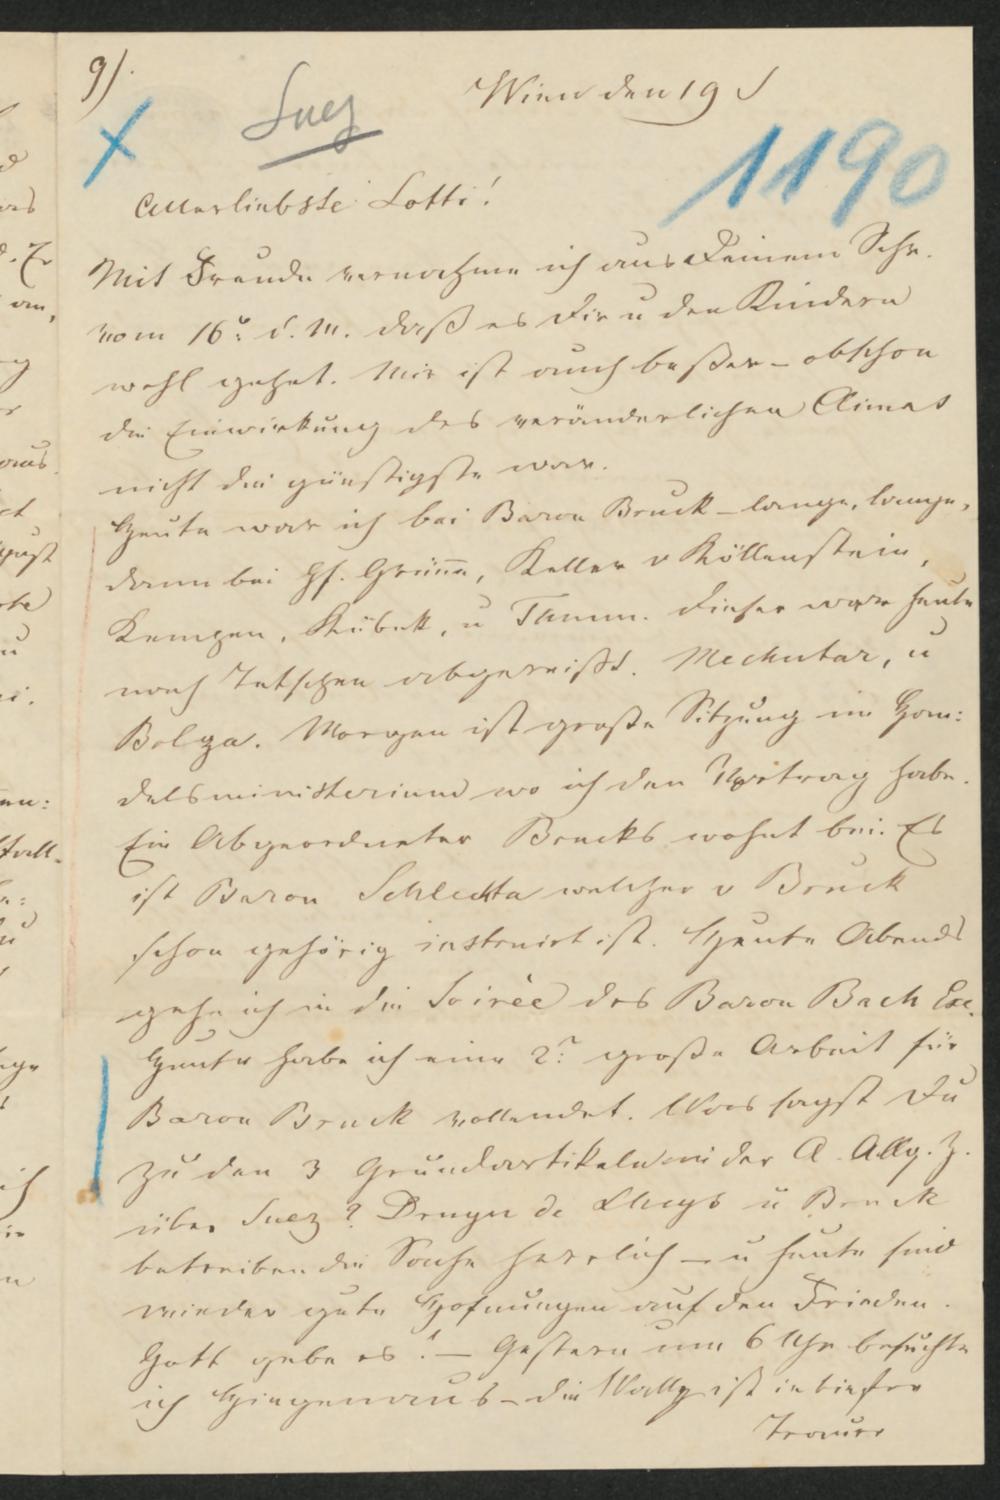 9).
Wien den 19
Suez
1190
Allerliebste Lotti!
Mit Freude vernahme ich aus Deinem Schr.
vom 16t. d. M. daß es Dir u den Kindern
wohl gehet. Mir ist auch beßer – obschon
die Einwirkung des veränderlichen Climas
nicht die günstigste war.
Heute war ich bei Baron Bruck – lange, lange,
dann bei Gf. Grünne, Keller v Köllenstein,
Kempen, Kübek, u Thunn. Dieser war heute
nach Tetschen abgereißt. Mechitar, u
Bolza. Morgen ist große Sitzung im Han:
delsministerium wo ich den Vortrag habe.
Ein Abgeordneter Brucks wohnt bei. Es
ist Baron Schlechta welcher v Bruck
schon gehörig instruirt ist. Heute Abends
gehe ich in die Soirée des Baron Bach Exc.
Heute habe ich eine 2t. große Arbeit für
Baron Bruck vollendet. Was sagst Du
zu den 3 Grundartikeln in der A. Allg. Z.
über Suez? Drouyn de Lhuys u Bruck
betreiben die Sache herrlich – u heute sind
wieder gute Hofnungen auf den Frieden.
Gott gebe es! – Gestern um 6 Uhr besuchte
ich – die Wally ist in tiefer
Trauer